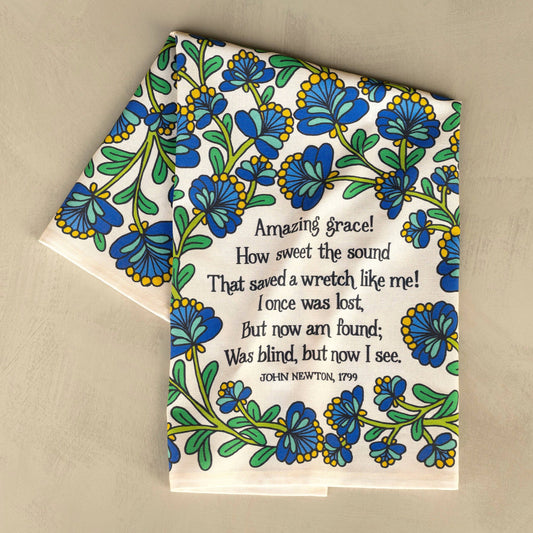 Amazing grace!
How sweet the sound
That saved a wretch like me!
I once was lost,
But now am found;
Was blind, but now I see.
JOHN NEWTON, 1799